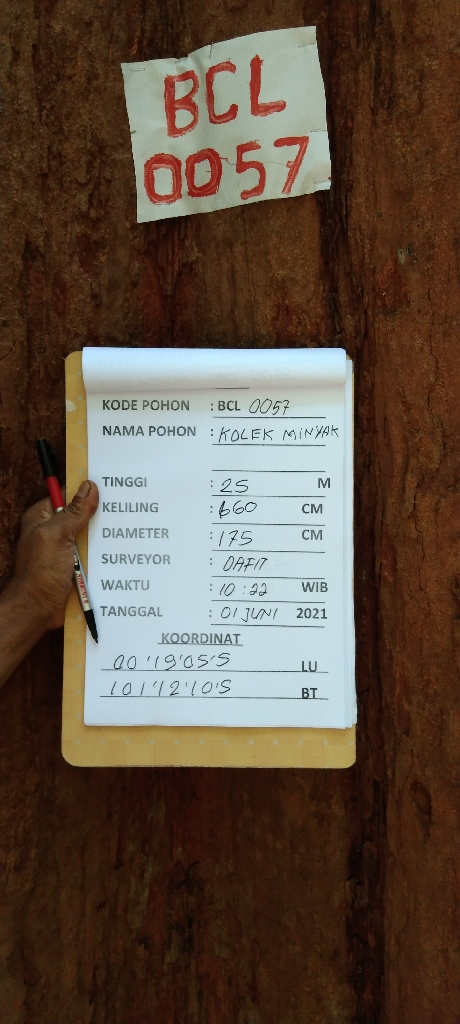 BCL
0057
KODE POHON : BCL 0057
NAMA POHON : KOLEK MINYAK
TINGGI : 25 M
KELILING : 660 CM
DIAMETER : 175 CM
SURVEYOR : DAFIT
WAKTU : 10:22 WIB
TANGGAL : 01 JUNI 2021
KOORDINAT
00°19'05'5 LU
101°12'10'5 BT